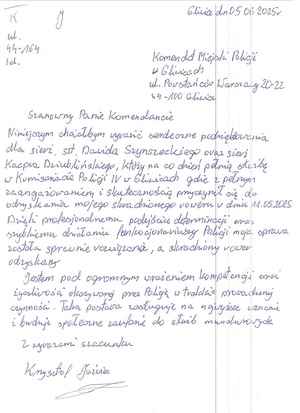 Gliwice dn 05 06 2025r
K J
ul.
44-164
tel.
Komendant Miejski Policji
w Gliwicach
ul. Powstańców Warszawy 20-22
44-100 Gliwice
Szanowny Panie Komendancie
Niniejszym chciałbym wyrazić serdeczne podziękowania
dla sierż. szt. Dawida Szynszeckiego oraz sierż.
Kacpra Dziublińskiego, którzy na co dzień pełnią służbę
w Komisariacie Policji IV w Gliwicach gdzie z pełnym
zaangażowaniem i skutecznością przyczynił się do
odzyskania mojego skradzionego roweru w dniu 11.05.2025
Dzięki profesjonalnemu podejściu determinacji oraz
szybkiemu działaniu funkcjonariuszy Policji moja sprawa
została sprawnie rozwiązana, a skradziony rower
odzyskany
Jestem pod ogromnym wrażeniem kompetencji oraz
życzliwości okazywanej przez Policję w trakcie prowadzonej
czynności. Taka postawa zasługuje na najwyższe uznanie
i buduje społeczne zaufanie do służb mundurowych
Z wyrazami szacunku
Krzysztof